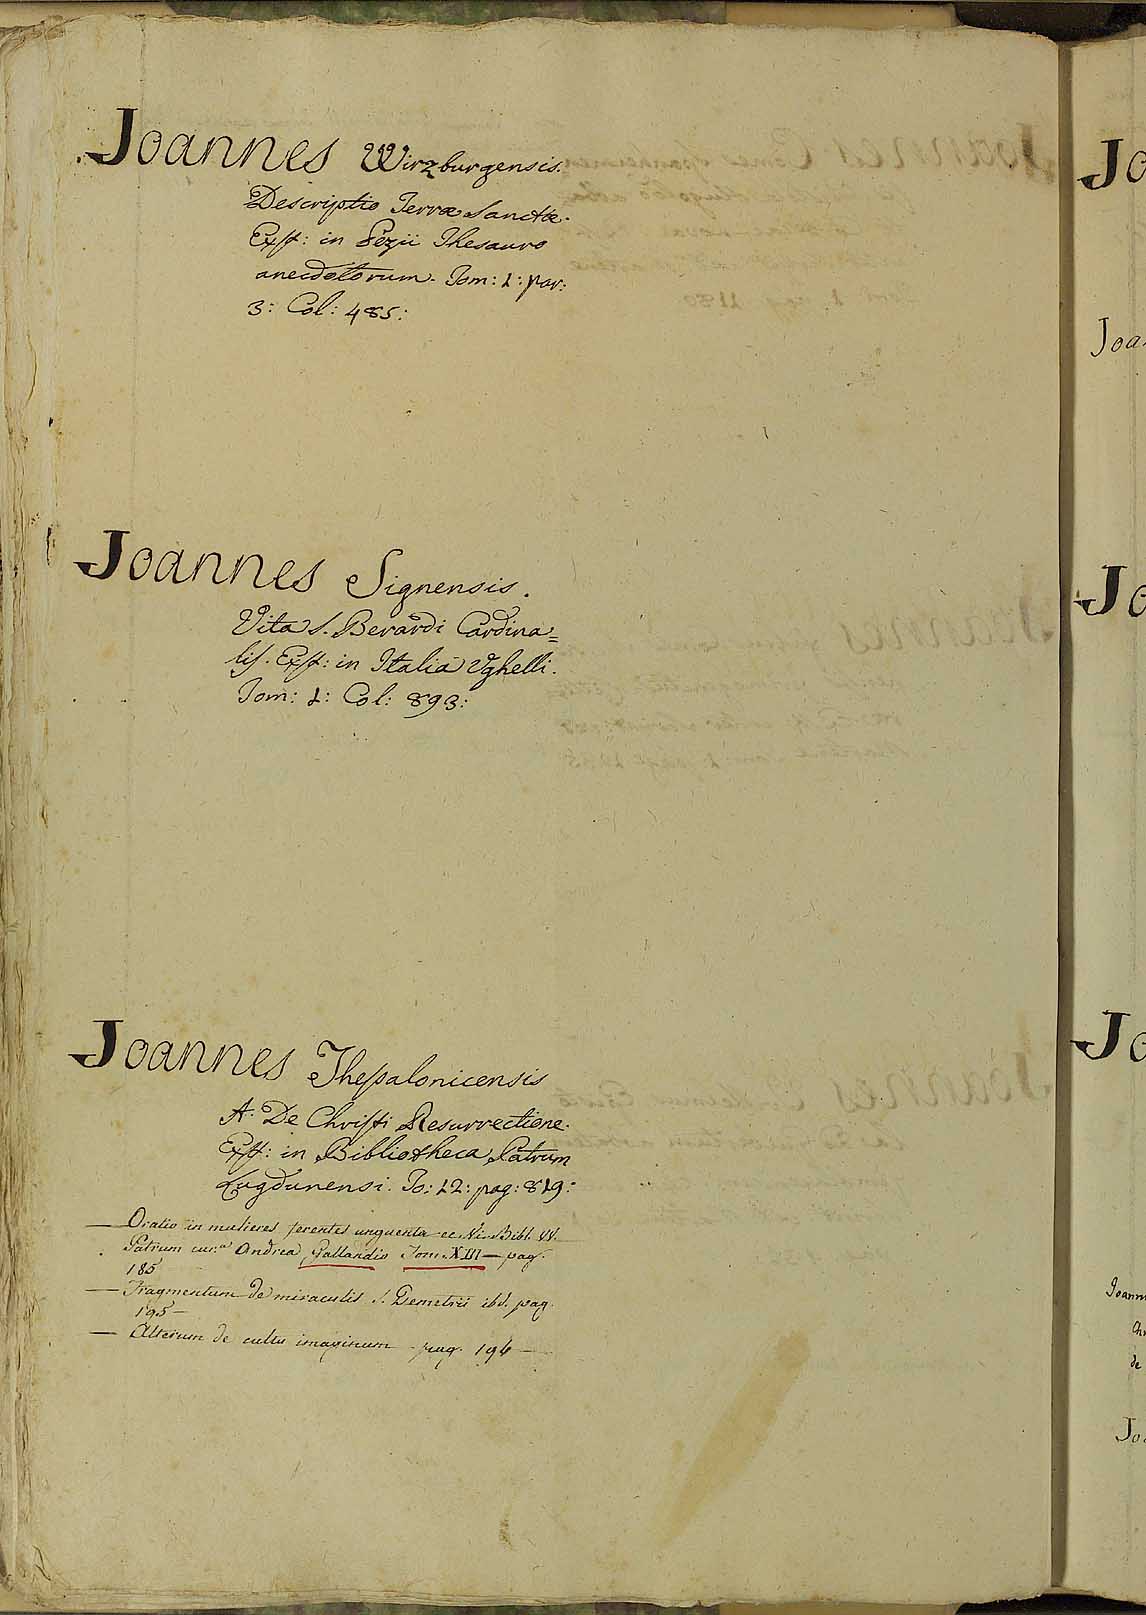 Joannes Wirzburgensis.
Descriptio Terræ Sanctæ.
Exst: in Pezii Thesauro
anecdotorum. Tom: 1: par:
3: Col: 485:
Joannes Signensis.
Vita S. Berardi Cardina=
lis. Exst: in Italia Ughelli.
Tom: 1: Col: 893:
Joannes Thessalonicensis
A. De Christi Resurrectione.
Exst: in Bibliotheca Patrum
Lugdunensi. To: 12: pag: 819:
— Oratio in mulieres ferentes unguenta Bibl. VV.
Patrum cur.ª Andrea Gallandio Tom. XIII — pag.
185
— Fragmentum de miraculis S. Demetrii ibd. pag.
195 —
— Alterum de cultu imaginum pag. 196 —
Jo
Joa
Jo
Jo
Joann
Ch
de
Jo